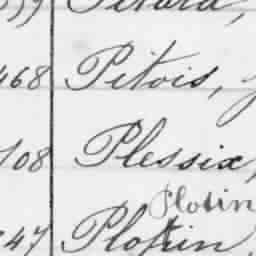 468 Pitois,
108 Plessix,
Plotin
247 Plotin,